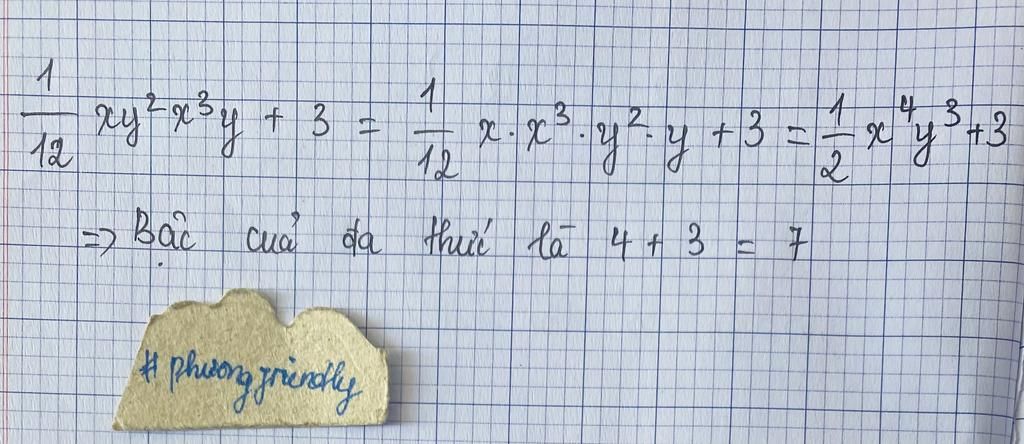 1/12 xy²x³y + 3 = 1/12 x · x³ · y² · y + 3 = 1/2 x⁴y³ + 3
=> Bậc của đa thức là 4 + 3 = 7
# phuongfriendly